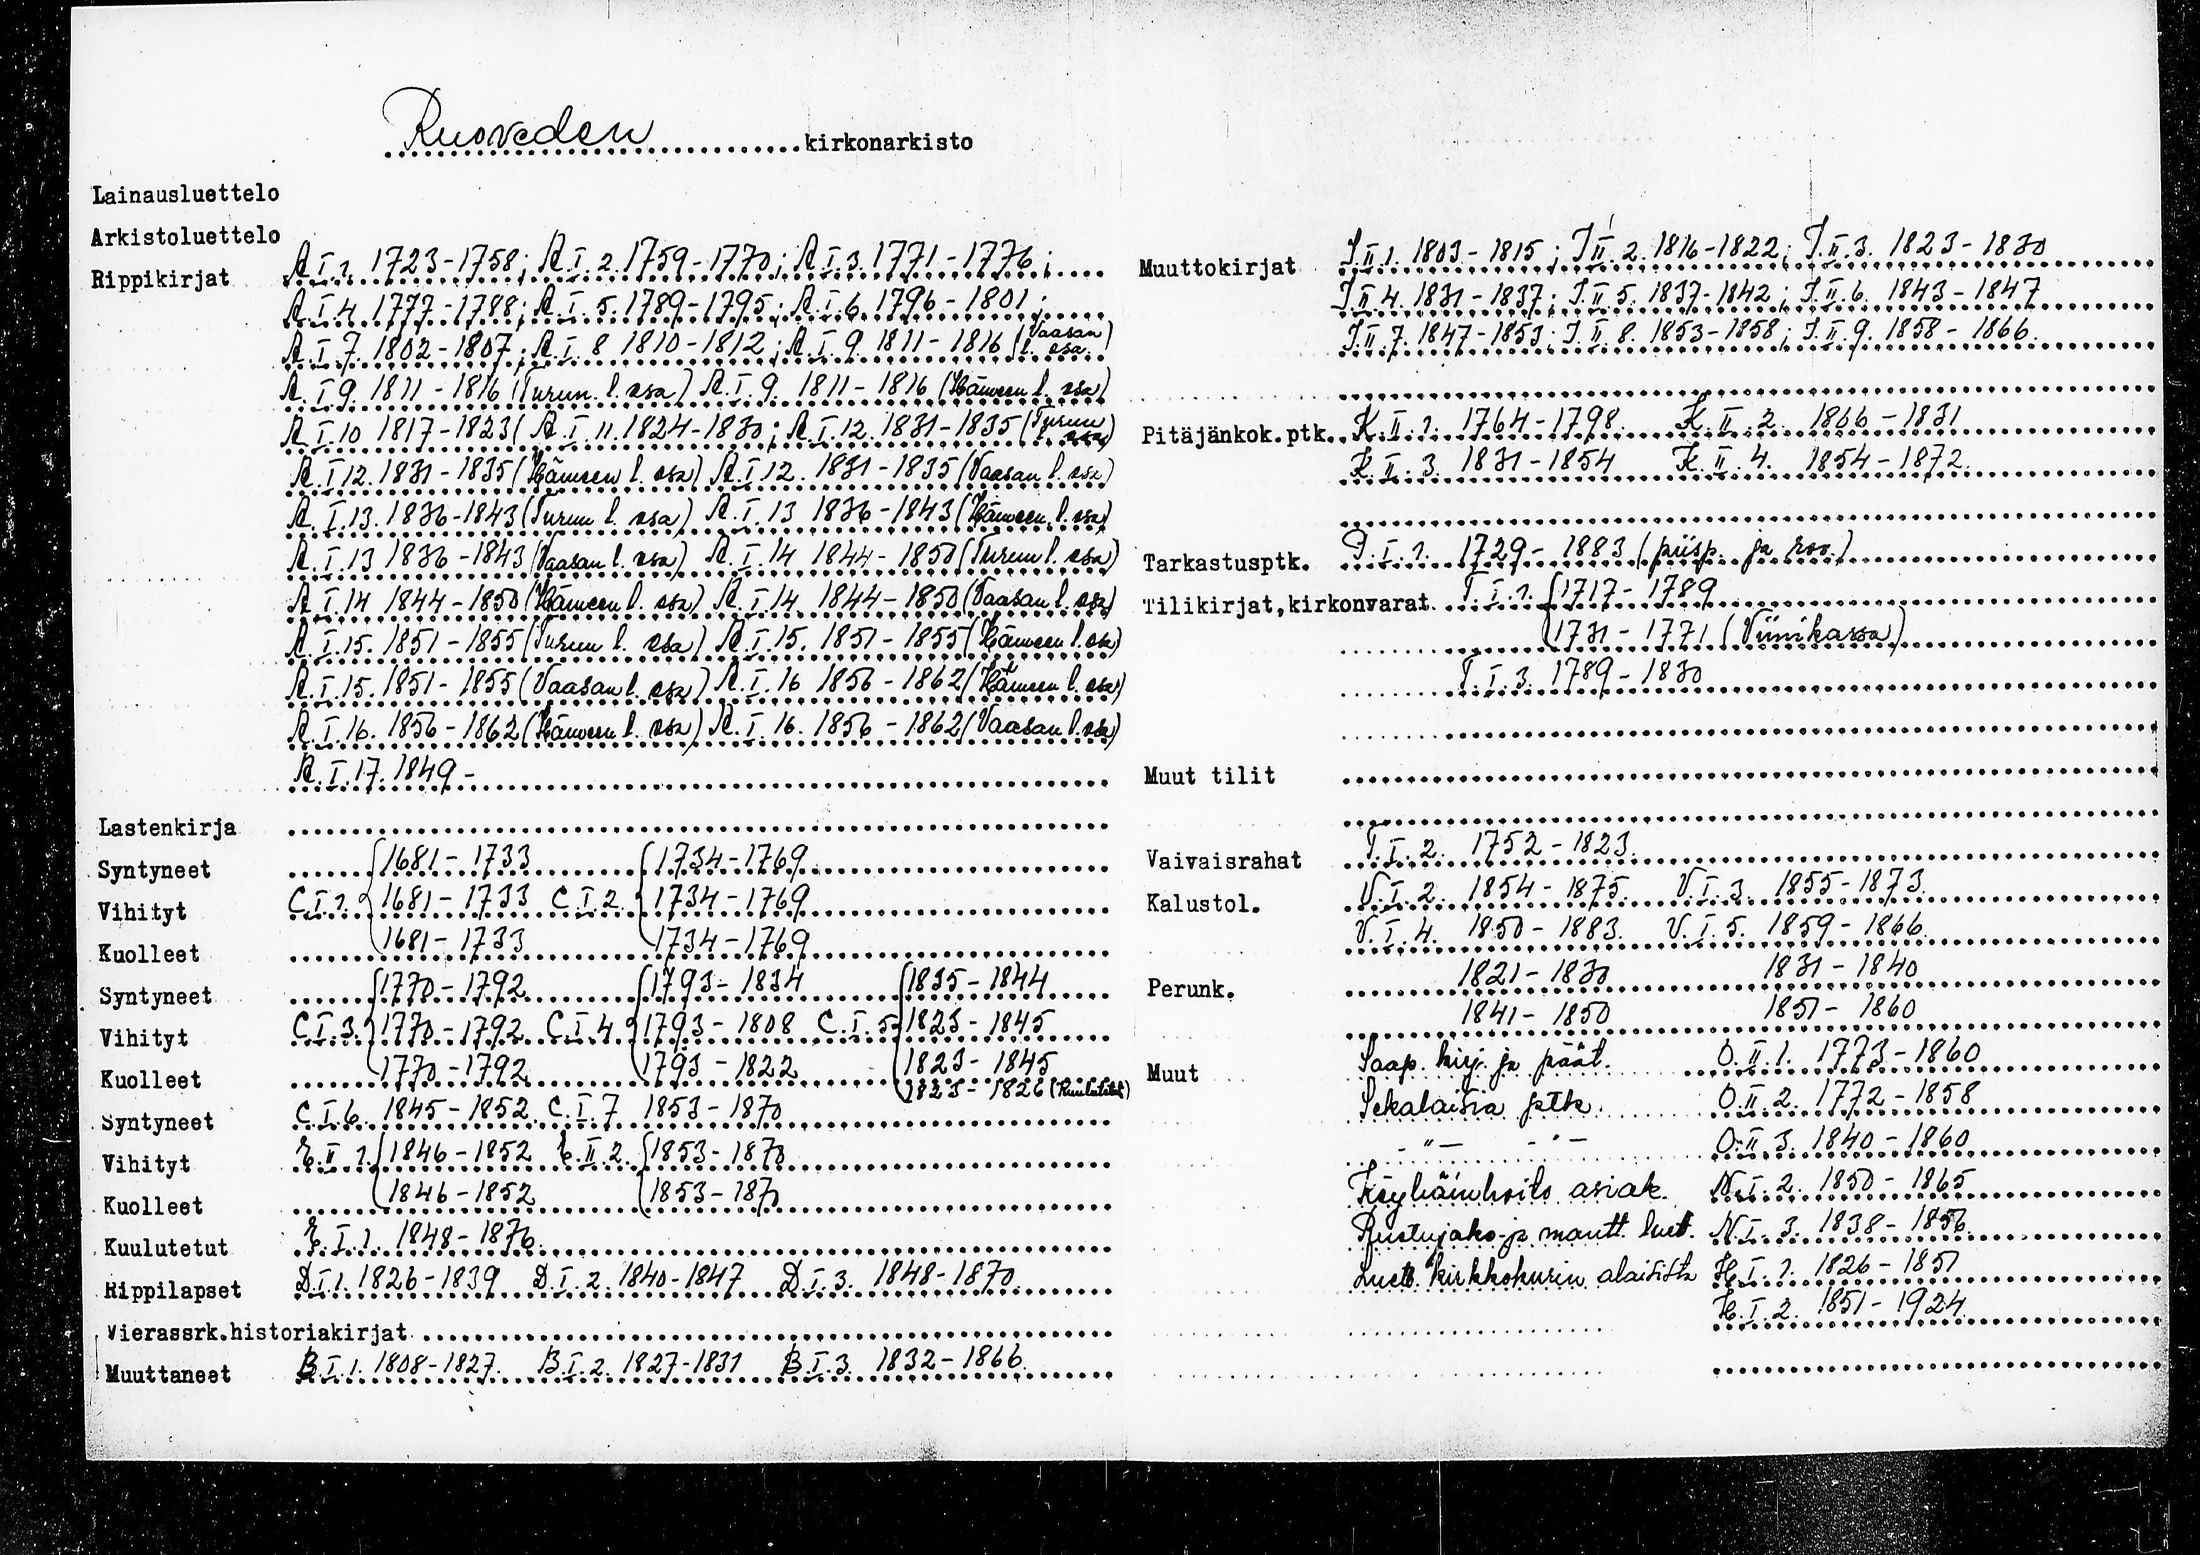 Ruoveden kirkonarkisto
Lainausluettelo
Arkistoluettelo
Rippikirjat A.I.1. 1723-1758; A.I.2. 1759-1770; A.I.3. 1771-1776;
A.I.4 1777-1788; A.I.5. 1789-1795; A.I.6 1796-1801;
A.I.7. 1802-1807; A.I.8 1810-1812; A.I.9. 1811-1816 (Vaasan l. osa)
A.I.9. 1811-1816 (Turun l. osa) A.I.9. 1811-1816 (Hämeen l. osa)
A.I.10 1817-1823( A.I.11. 1824-1830; A.I.12. 1831-1835 (Turun l. osa)
A.I.12. 1831-1835 (Hämeen l. osa) A.I.12. 1831-1835 (Vaasan l. osa)
A.I.13. 1836-1843 (Turun l. osa) A.I.13 1836-1843 (Hämeen l. osa)
A.I.13 1836-1843 (Vaasan l. osa) A.I.14 1844-1850 (Turun l. osa)
A.I.14 1844-1850 (Hämeen l. osa) A.I.14. 1844-1850 (Vaasan l. osa)
A.I.15. 1851-1855 (Turun l. osa) A.I.15. 1851-1855 (Hämeen l. osa)
A.I.15. 1851-1855 (Vaasan l. osa) A.I.16 1856-1862 (Hämeen l. osa)
A.I.16. 1856-1862 (Hämeen l. osa) A.I.16. 1856-1862 (Vaasan l. osa)
A.I.17. 1849-
Lastenkirja
Syntyneet 1681-1733 1734-1769
Vihityt C.I.1. 1681-1733 C.I.2. 1734-1769
Kuolleet 1681-1733 1734-1769
Syntyneet 1770-1792 1793-1834 1835-1844
Vihityt C.I.3. 1770-1792 C.I.4 1793-1808 C.I.5 1823-1845
Kuolleet 1770-1792 1793-1822 1823-1845
1823-1826 (Kuulutetut)
Syntyneet C.I.6. 1845-1852 C.I.7 1853-1870
Vihityt E.II.1 1846-1852 E.II.2. 1853-1870
Kuolleet 1846-1852 1853-1870
Kuulutetut E.I.1. 1848-1876
Rippilapset D.I.1. 1826-1839 D.I.2. 1840-1847 D.I.3. 1848-1870
Vierassrk.historiakirjat
Muuttaneet B.I.1. 1808-1827. B.I.2. 1827-1831 B.I.3. 1832-1866
Muuttokirjat J.II.1. 1803-1815; J.II.2. 1816-1822; J.II.3. 1823-1830
J.II.4. 1831-1837; J.II.5. 1837-1842; J.II.6. 1843-1847
J.II.7. 1847-1853; J.II.8. 1853-1858; J.II.9. 1858-1866.
Pitäjänkok.ptk. K.II.1. 1764-1798. K.II.2. 1806-1831
K.II.3. 1831-1854 K.II.4. 1854-1872.
Tarkastusptk. P.I.1. 1729-1883 (piisp. ja rov.)
Tilikirjat,kirkonvarat T.I.1. 1717-1789
1731-1771 (Viinikassa)
T.I.3. 1789-1830
Muut tilit
Vaivaisrahat T.I.2. 1752-1823.
Kalustol. V.I.2. 1854-1875. V.I.3. 1855-1873.
V.I.4. 1850-1883. V.I.5. 1859-1866.
Perunk. 1821-1830 1831-1840
1841-1850 1851-1860
Muut Saap. kirj. ja päät. O.II.1. 1773-1860
Sekalaisia ptk. O.II.2. 1772-1858
-"- -"- O.II.3. 1840-1860
Köyhäinhoito asiak. N.I.2. 1850-1865
Ruotujako-ja mantt. luet. N.I.3. 1838-1856
Luett. kirkkokurin alaisista H.I.1. 1826-1851
H.I.2. 1851-1924